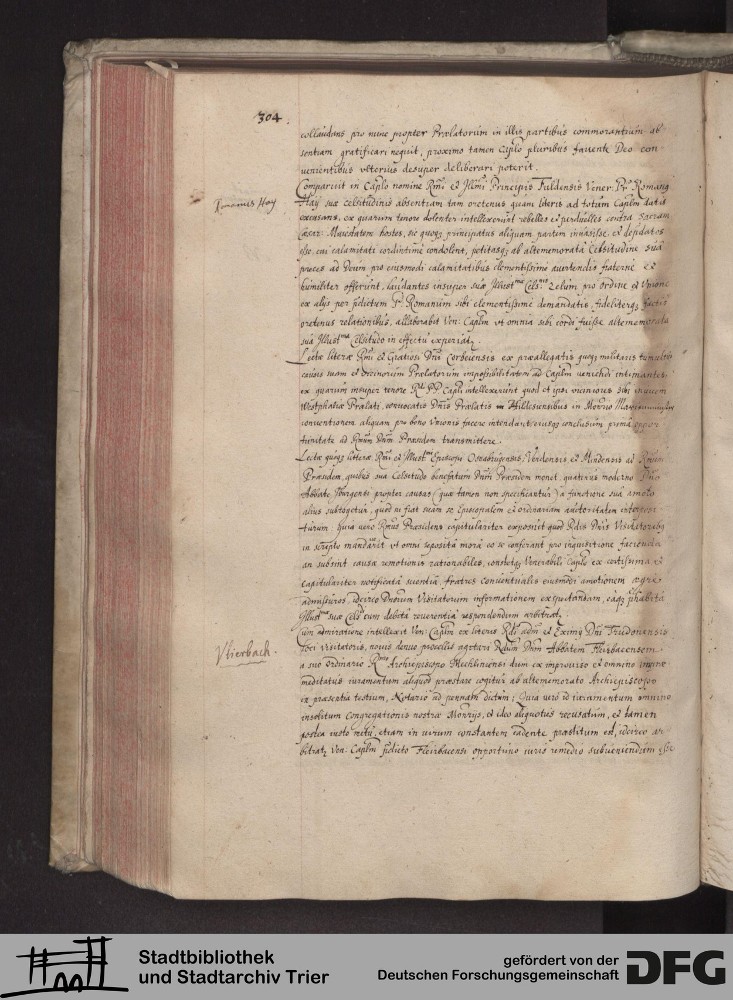 304.
collaudans pro nunc propter Prælatorum in illis partibus commorantium ab
sentiam gratificari nequit, proximo tamen Caplo pluribus fauente Deo con
uenientibus vlterius desuper deliberari poterit.
Romanus Hay
Comparuit in Caplo nomine Rmi et Illmi Principis Fuldensis Vener. Pr. Romanus
Haÿ suæ celsitudinis absentiam tam oretenus quam literis ad totum Caplm datis
excusans, ex quarum tenore dolenter intellexerunt rebelles et perduelles contra sacram
Cæsar. Maiestatem hostes, sic quoqz principatus aliquam partem inuasisse et
esse, cui calamitati condolent, ab altememorata Celsitudine sua
preces ad Deum pro eiusmodi calamitatibus clementissime auertendis fraterne et
humiliter offerunt, laudantes insuper suæ Illustmæ Celsnis Zelum pro ordine et Vnione
ex alijs per prædictum P. Romanum sibi clementissime demandatis, fideliterqz factis
oretenus relationibus, allaborabit Ven: Caplm vt omnia sibi cordi fuisse altememorata
sua Illustma Celsitudo in effectu experiatr.
Lectæ literæ Rmi et Gratiosi Dni Corbeiensis ex præallegatis quoqz militaris tumultus
causis suam et vicinorum Prælatorum impossibilitatem ad Caplm veniendi intimantes
ex quarum insuper tenore Rdi PP. Capli intellexerunt quod et ipsi viciniores sibi inuicem
Westphaliæ Prælati, conuocatis Dnis Prælatis Hildesiensibus in Monrio
conuentionem aliquam pro bono Vnionis facere intendant, eiusqz conclusum prima oppor
tunitate ad Rmum Dnm Præsidem transmittere.
Lectæ quoqz litteræ Rmi et Illustmi Episcopi Osnabrugensis, Verdensis, et Mindensis ad Rmum
Præsidem, quibus sua Celsitudo benefatum Dnm Præsidem monet, quatenus moderno Dno
Abbate Iburgensi propter causas (quæ tamen non specificantur) a functione sua amoto
alius subrogetur, quod ni fiat suam se Episcopalem et ordinariam auctoritatem interposi
turum: Quia vero Rmus Præsidens capitulariter exposuit quod Rdis Dnis Visitatoribus
in scripto mandauit vt omni seposita mora eo se conferant pro inquisitione facienda
an subsint causæ remotionis rationabiles, Venerabili Caplo ex certissima et
capitulariter notificata scientia, fratres Conuentuales eiusmodi amotionem ægre
admissuros, idcirco Dnorum Visitatorum informationem expectandam, eaqz præhabita
Illustmæ suæ Celsni cum debita reuerentia respondendum arbitratr.
Vlierbach.
Cum admiratione intellexit Ven: Caplm ex literis Rdi adm et Eximij Dni Trudonensis
loci visitatoris, nouis denuo procellis agitari Rdum Dnm Abbatem Fleirbacensem
a suo Ordinario Rmo Archiepiscopo Mechliniensi dum ex improuiso et omnino
meditatus iuramentum aliquod præstare cogitur ab altememorato Archiepiscopo
in præsentia testium, Notario ad pennam dictum; Quia vero id iuramentum omnino
insolitum Congregationis nostræ Monrijs, et ideo aliquoties recusatum, et tamen
postea iusto metu, etiam in virum constantem cadente præstitum est, idcirco ar
bitratr Ven: Caplm prædicto Fleirbacensi opportuno iuris remedio subueniendum esse
Stadtbibliothek
und Stadtarchiv Trier
gefördert von der
Deutschen Forschungsgemeinschaft
DFG